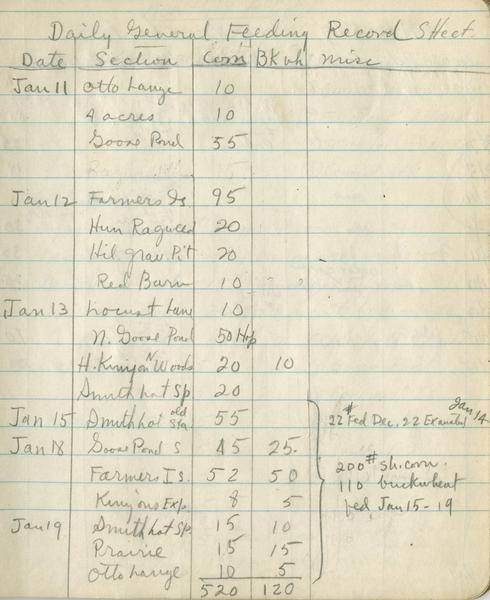 Daily General Feeding Record Sheet
Date Section Corn BKwh misc
Jan 11 Otto Lange 10
4 acres 10
Goose Pond 55
Jan 12 Farmers Is 95
Hun Ragweed 20
Hil grav Pit 20
Red Barn 10
Jan 13 Locust Lane 10
N. Goose Pond 50 Hop
H. Kinyon N Woods 20 10
Smith hat Sp. 20
Jan 15 Smith hat old Sta 55
22# Fed Dec. 22 Jan 14
Jan 18 Goose Pond S 45 25.
200# sh. corn.
Farmers Is. 52 50
110 buckwheat
Kinyons Exp. 8 5
fed Jan 15-19
Jan 19 Smith hat Sp. 15 10
Prairie 15 15
Otto Lange 10 5
520 120